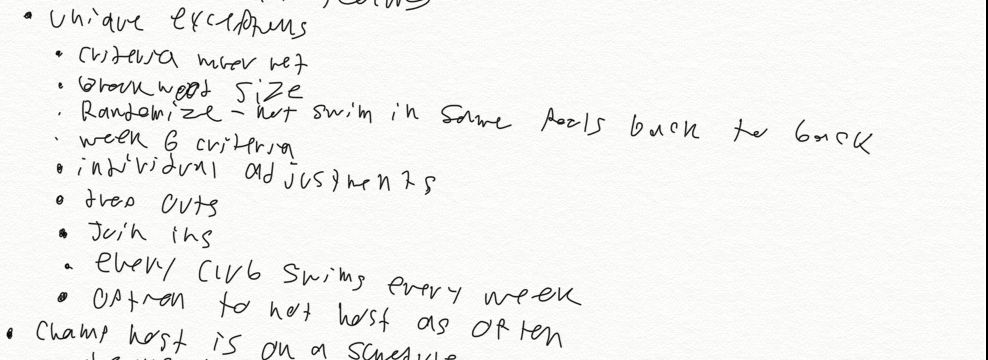 • unique exceptions
• criteria never met
• size
• Randomize - not swim in same pools back to back
• week 6 criteria
• individual adjustments
• drop outs
• Join ins
• every club swims every week
• option to not host as often
• Champ host is on a schedule